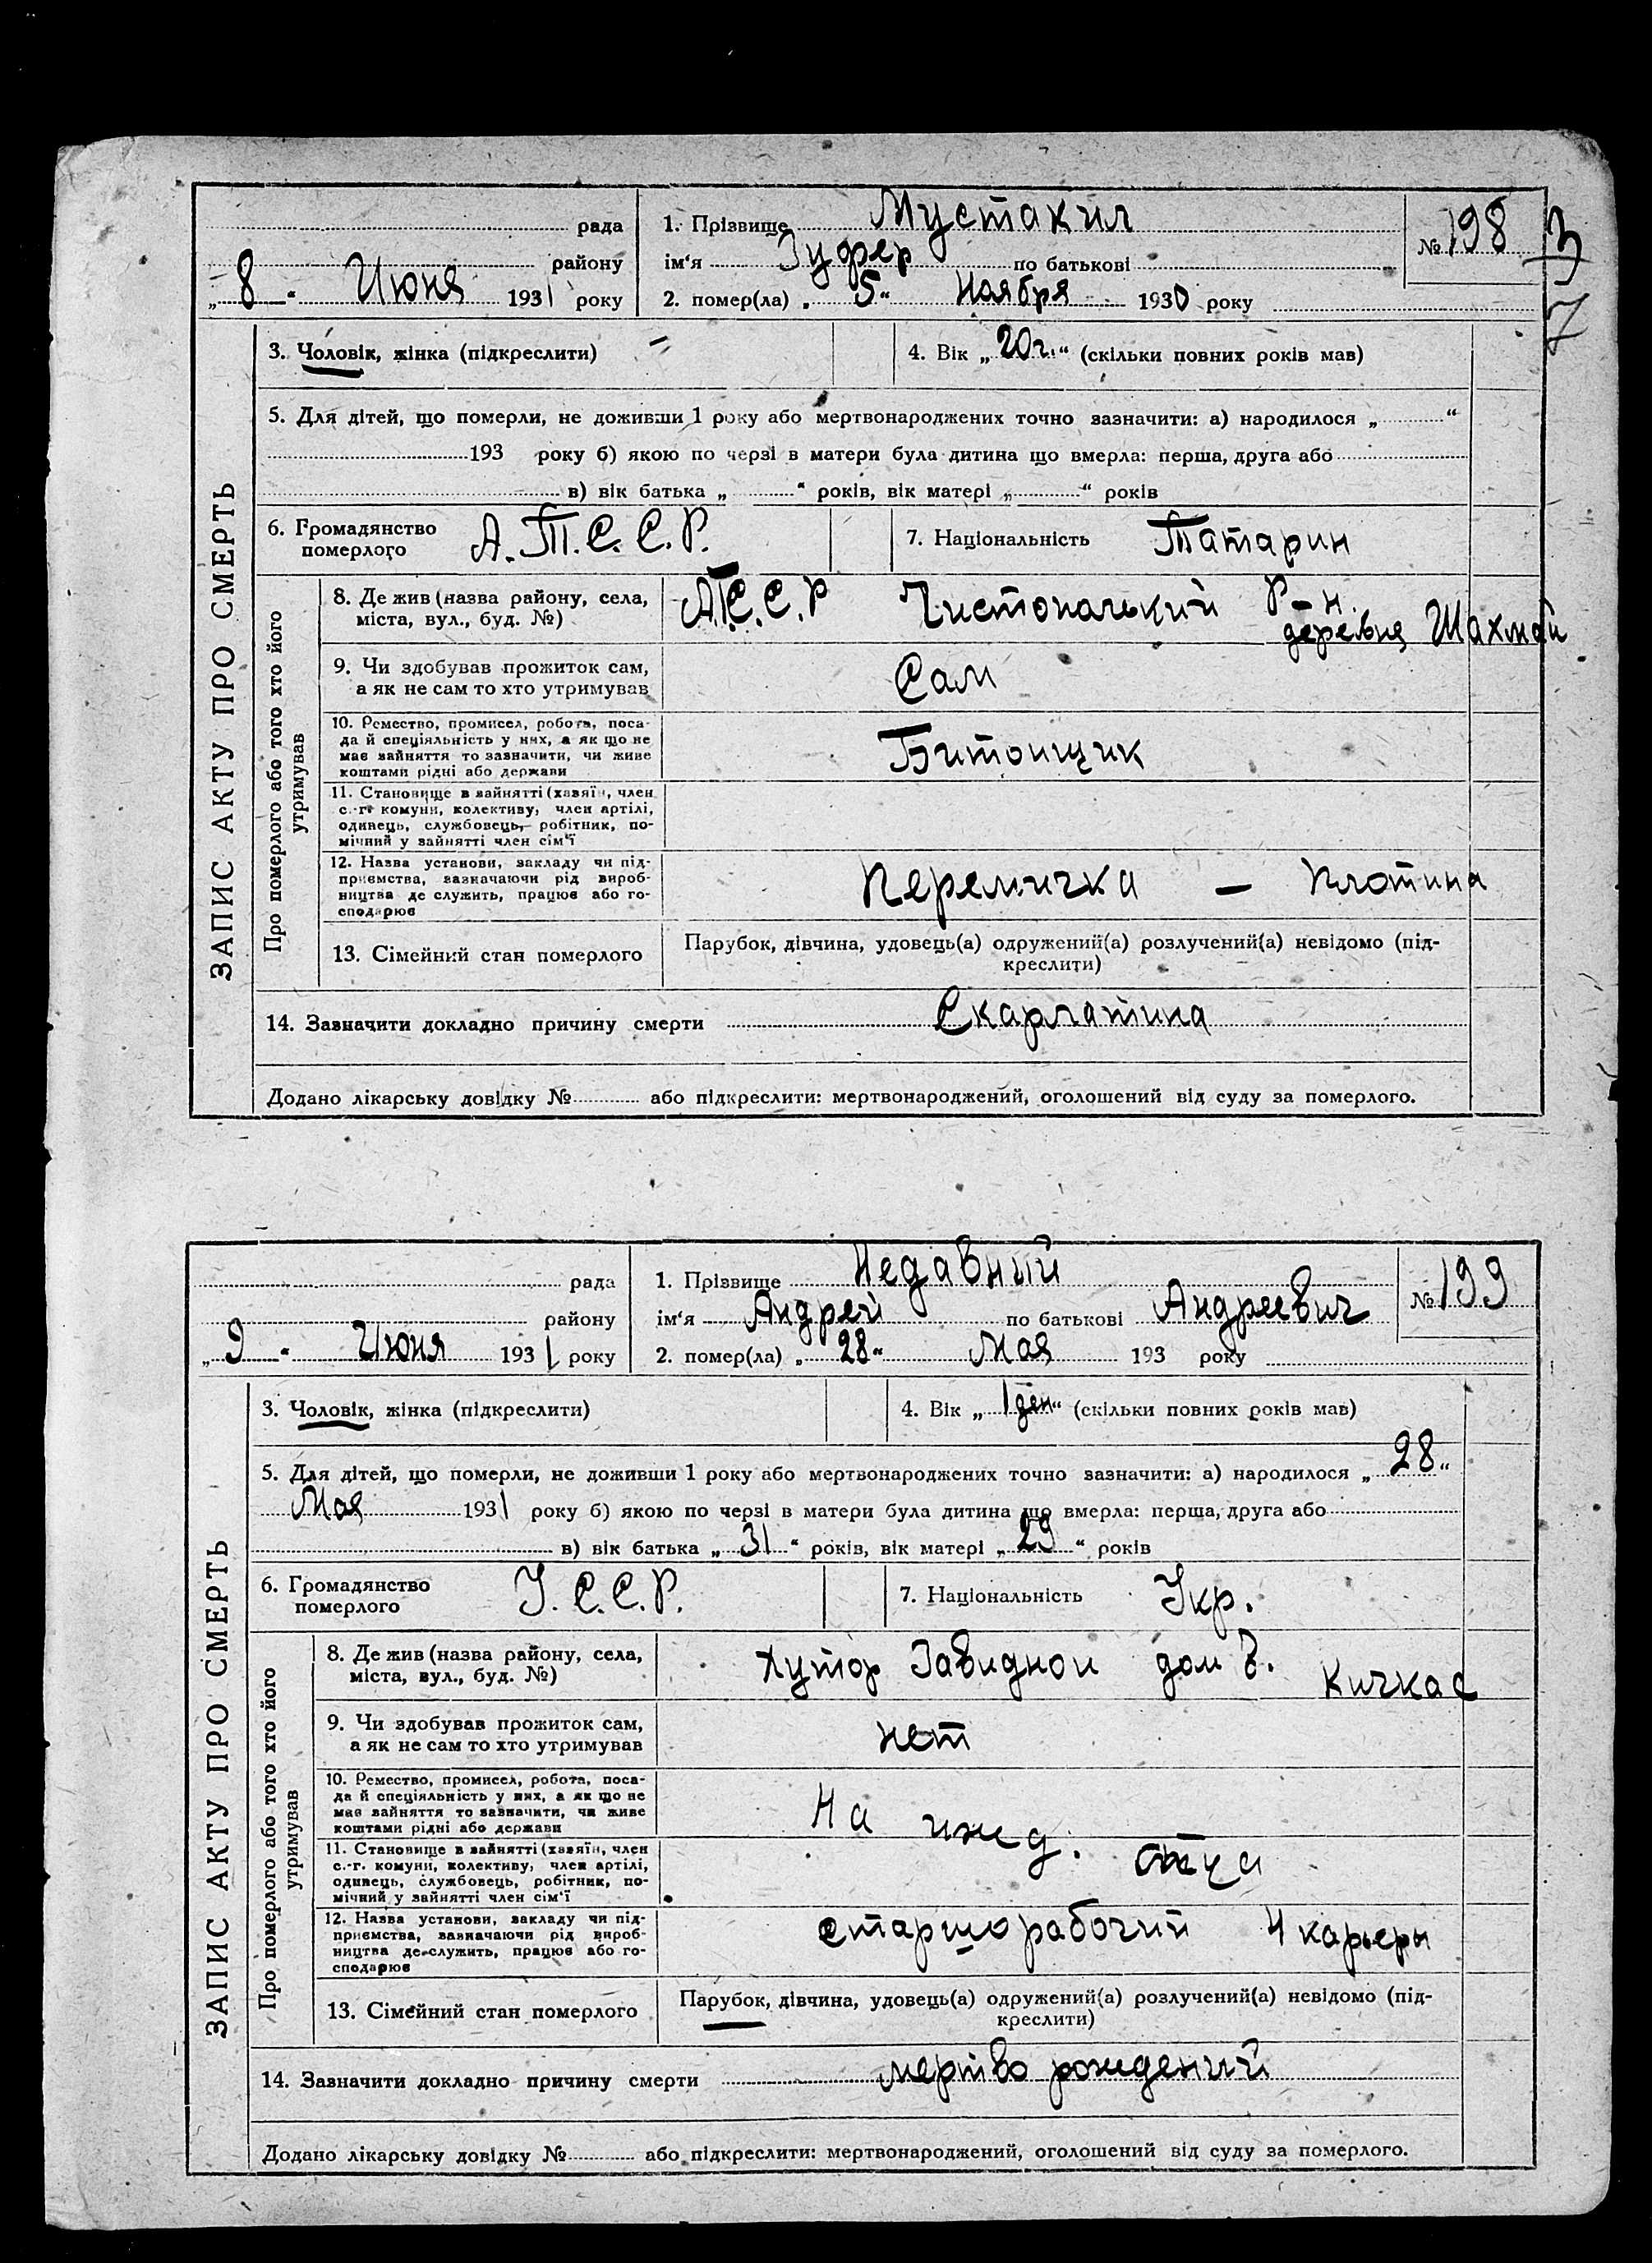 рада
району
„ 8 “ Июня 1931 року
1. Прізвище Мустакил
ім‘я Зуфер по батькові
2. помер(ла) „ 5 “ Ноября 1930 року
№ 198
3
7
ЗАПИС АКТУ ПРО СМЕРТЬ
3. Чоловік, жінка (підкреслити)
4. Вік „ 20 г. “ (скільки повних років мав)
5. Для дітей, що померли, не доживши 1 року або мертвонароджених точно зазначити: а) народилося „ “
193 року б) якою по черзі в матери була дитина що вмерла: перша, друга або
в) вік батька „ “ років, вік матері „ “ років
6. Громадянство
померлого
А.Т.С.С.Р.
7. Національність Татарин
Про померлого або того хто його
утримував
8. Де жив (назва району, села,
міста, вул., буд. №)
А.Т.С.С.Р Чистопольский Р-н.
деревня Шахмай
9. Чи здобував прожиток сам,
а як не сам то хто утримував
Сам
10. Ремество, промисел, робота, поса-
да й спеціяльність у них, а як що не
має зайняття то зазначити, чи живе
коштами рідні або держави
Битонщик
11. Становище в зайнятті (хазяїн, член
с.-г. комуни, колективу, член артілі,
одинець, службовець, робітник, по-
мічний у зайнятті член сім‘ї
12. Назва установи, закладу чи під-
приємства, зазначаючи рід вироб-
ництва де служить, працює або го-
сподарює
Перемичка – Плотина
13. Сімейний стан померлого
Парубок, дівчина, удовець(а) одружений(а) розлучений(а) невідомо (під-
креслити)
14. Зазначити докладно причину смерти Скарлатина
Додано лікарську довідку № або підкреслити: мертвонароджений, оголошений від суду за померлого.
рада
району
„ 9 “ Июня 1931 року
1. Прізвище Недавний
ім‘я Андрей по батькові Андреевич
2. помер(ла) „ 28 “ Мая 193 року
№ 199
ЗАПИС АКТУ ПРО СМЕРТЬ
3. Чоловік, жінка (підкреслити)
4. Вік „ 1 ден “ (скільки повних років мав)
5. Для дітей, що померли, не доживши 1 року або мертвонароджених точно зазначити: а) народилося „ 28 “
Мая 1931 року б) якою по черзі в матери була дитина що вмерла: перша, друга або
в) вік батька „ 31 “ років, вік матері „ 29 “ років
6. Громадянство
померлого
У.С.С.Р.
7. Національність Укр.
Про померлого або того хто його
утримував
8. Де жив (назва району, села,
міста, вул., буд. №)
Хутор Завидной дом 8. Кичкас
9. Чи здобував прожиток сам,
а як не сам то хто утримував
нет
10. Ремество, промисел, робота, поса-
да й спеціяльність у них, а як що не
має зайняття то зазначити, чи живе
коштами рідні або держави
На ижд. отца
11. Становище в зайнятті (хазяїн, член
с.-г. комуни, колективу, член артілі,
одинець, службовець, робітник, по-
мічний у зайнятті член сім‘ї
12. Назва установи, закладу чи під-
приємства, зазначаючи рід вироб-
ництва де служить, працює або го-
сподарює
старшо рабочий 4 карьеры
13. Сімейний стан померлого
Парубок, дівчина, удовець(а) одружений(а) розлучений(а) невідомо (під-
креслити)
14. Зазначити докладно причину смерти мертво рожденый
Додано лікарську довідку № або підкреслити: мертвонароджений, оголошений від суду за померлого.